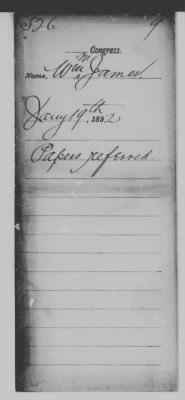 526 9
Congress.
Name, Wm M James.
Jany 19th 1892
Papers referred.